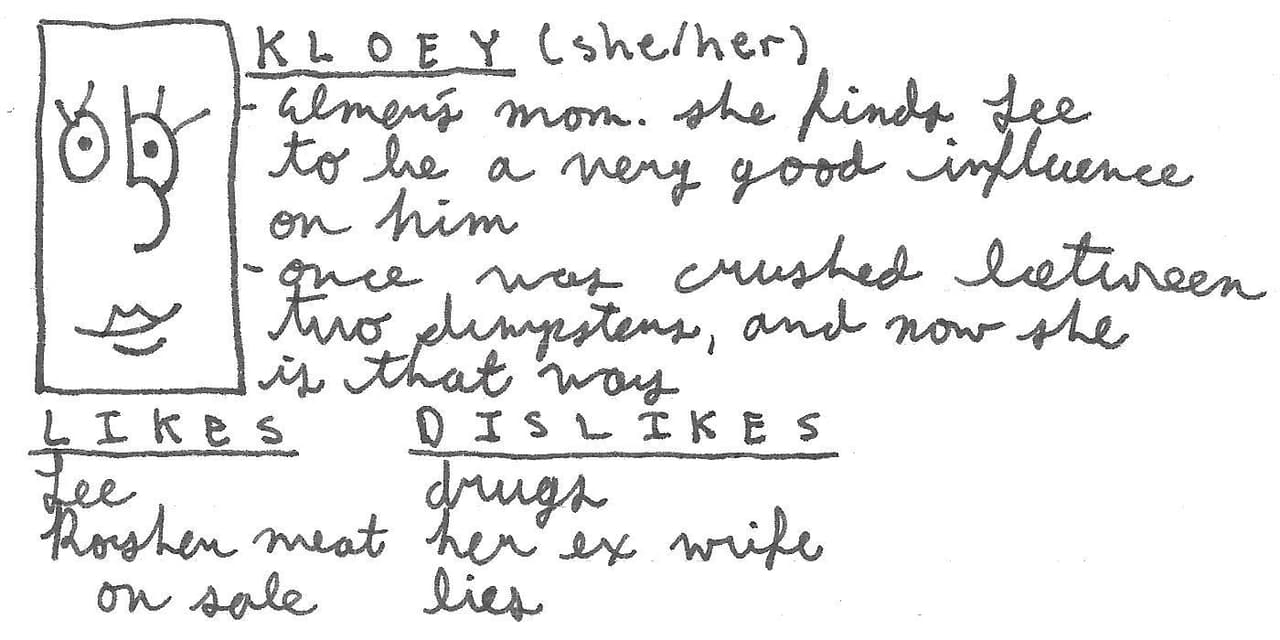 KLOEY (she/her)
- Elmer's mom. she finds Lee
to be a very good influence
on him
- once was crushed between
two dumpsters, and now she
is that way
LIKES DISLIKES
Lee drugs
Kosher meat her ex wife
on sale lies